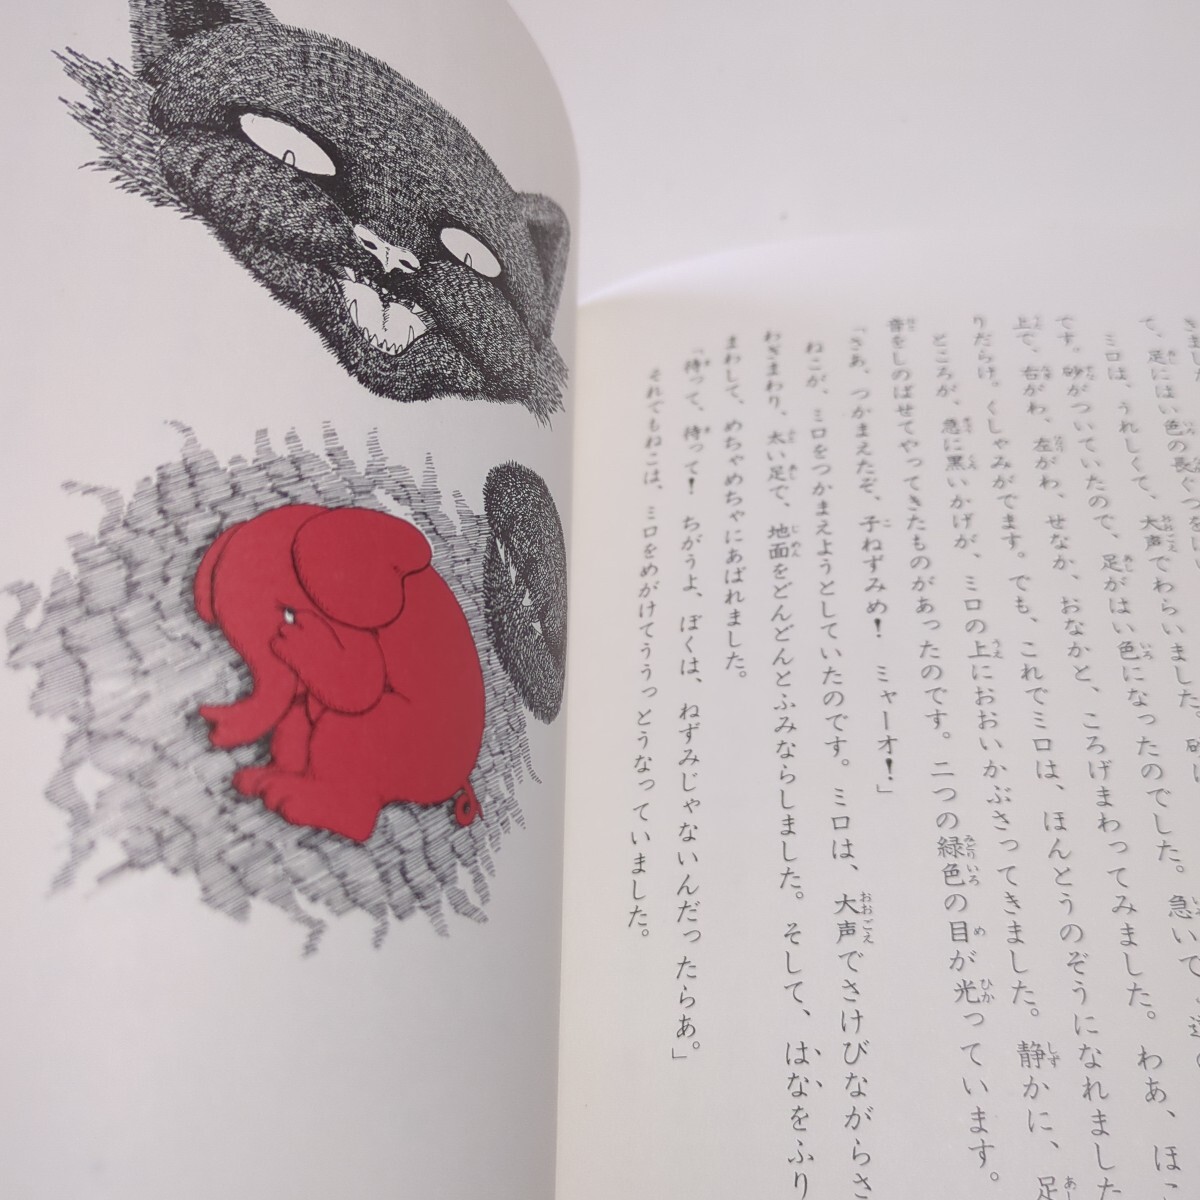 て、足にはい色の長ぐつ
ミロは、うれしくて、大声でわらいました。砂に
です。砂がついていたので、足がはい色になったのでした。急いで、道の
上で、右がわ、左がわ、せなか、おなかと、ころげまわってみました。わあ、ほこ
りだらけ。くしゃみがでます。でも、これでミロは、ほんとうのぞうになれました
ところが、急に黒いかげが、ミロの上におおいかぶさってきました。静かに、足
音をしのばせてやってきたものがあったのです。二つの緑色の目が光っています。
「さあ、つかまえたぞ、子ねずみめ！　ミャーオ！」
ねこが、ミロをつかまえようとしていたのです。ミロは、大声でさけびながらさ
わぎまわり、太い足で、地面をどんどんとふみならしました。そして、はなをふり
まわして、めちゃめちゃにあばれました。
「待って、待って！　ちがうよ、ぼくは、ねずみじゃないんだったらあ。」
それでもねこは、ミロをめがけてううっとうなっていました。